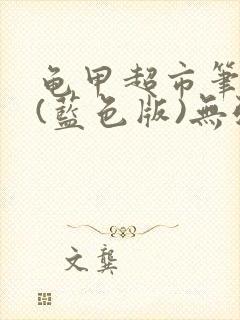 龟甲超市筆
(藍色版)無
文龔